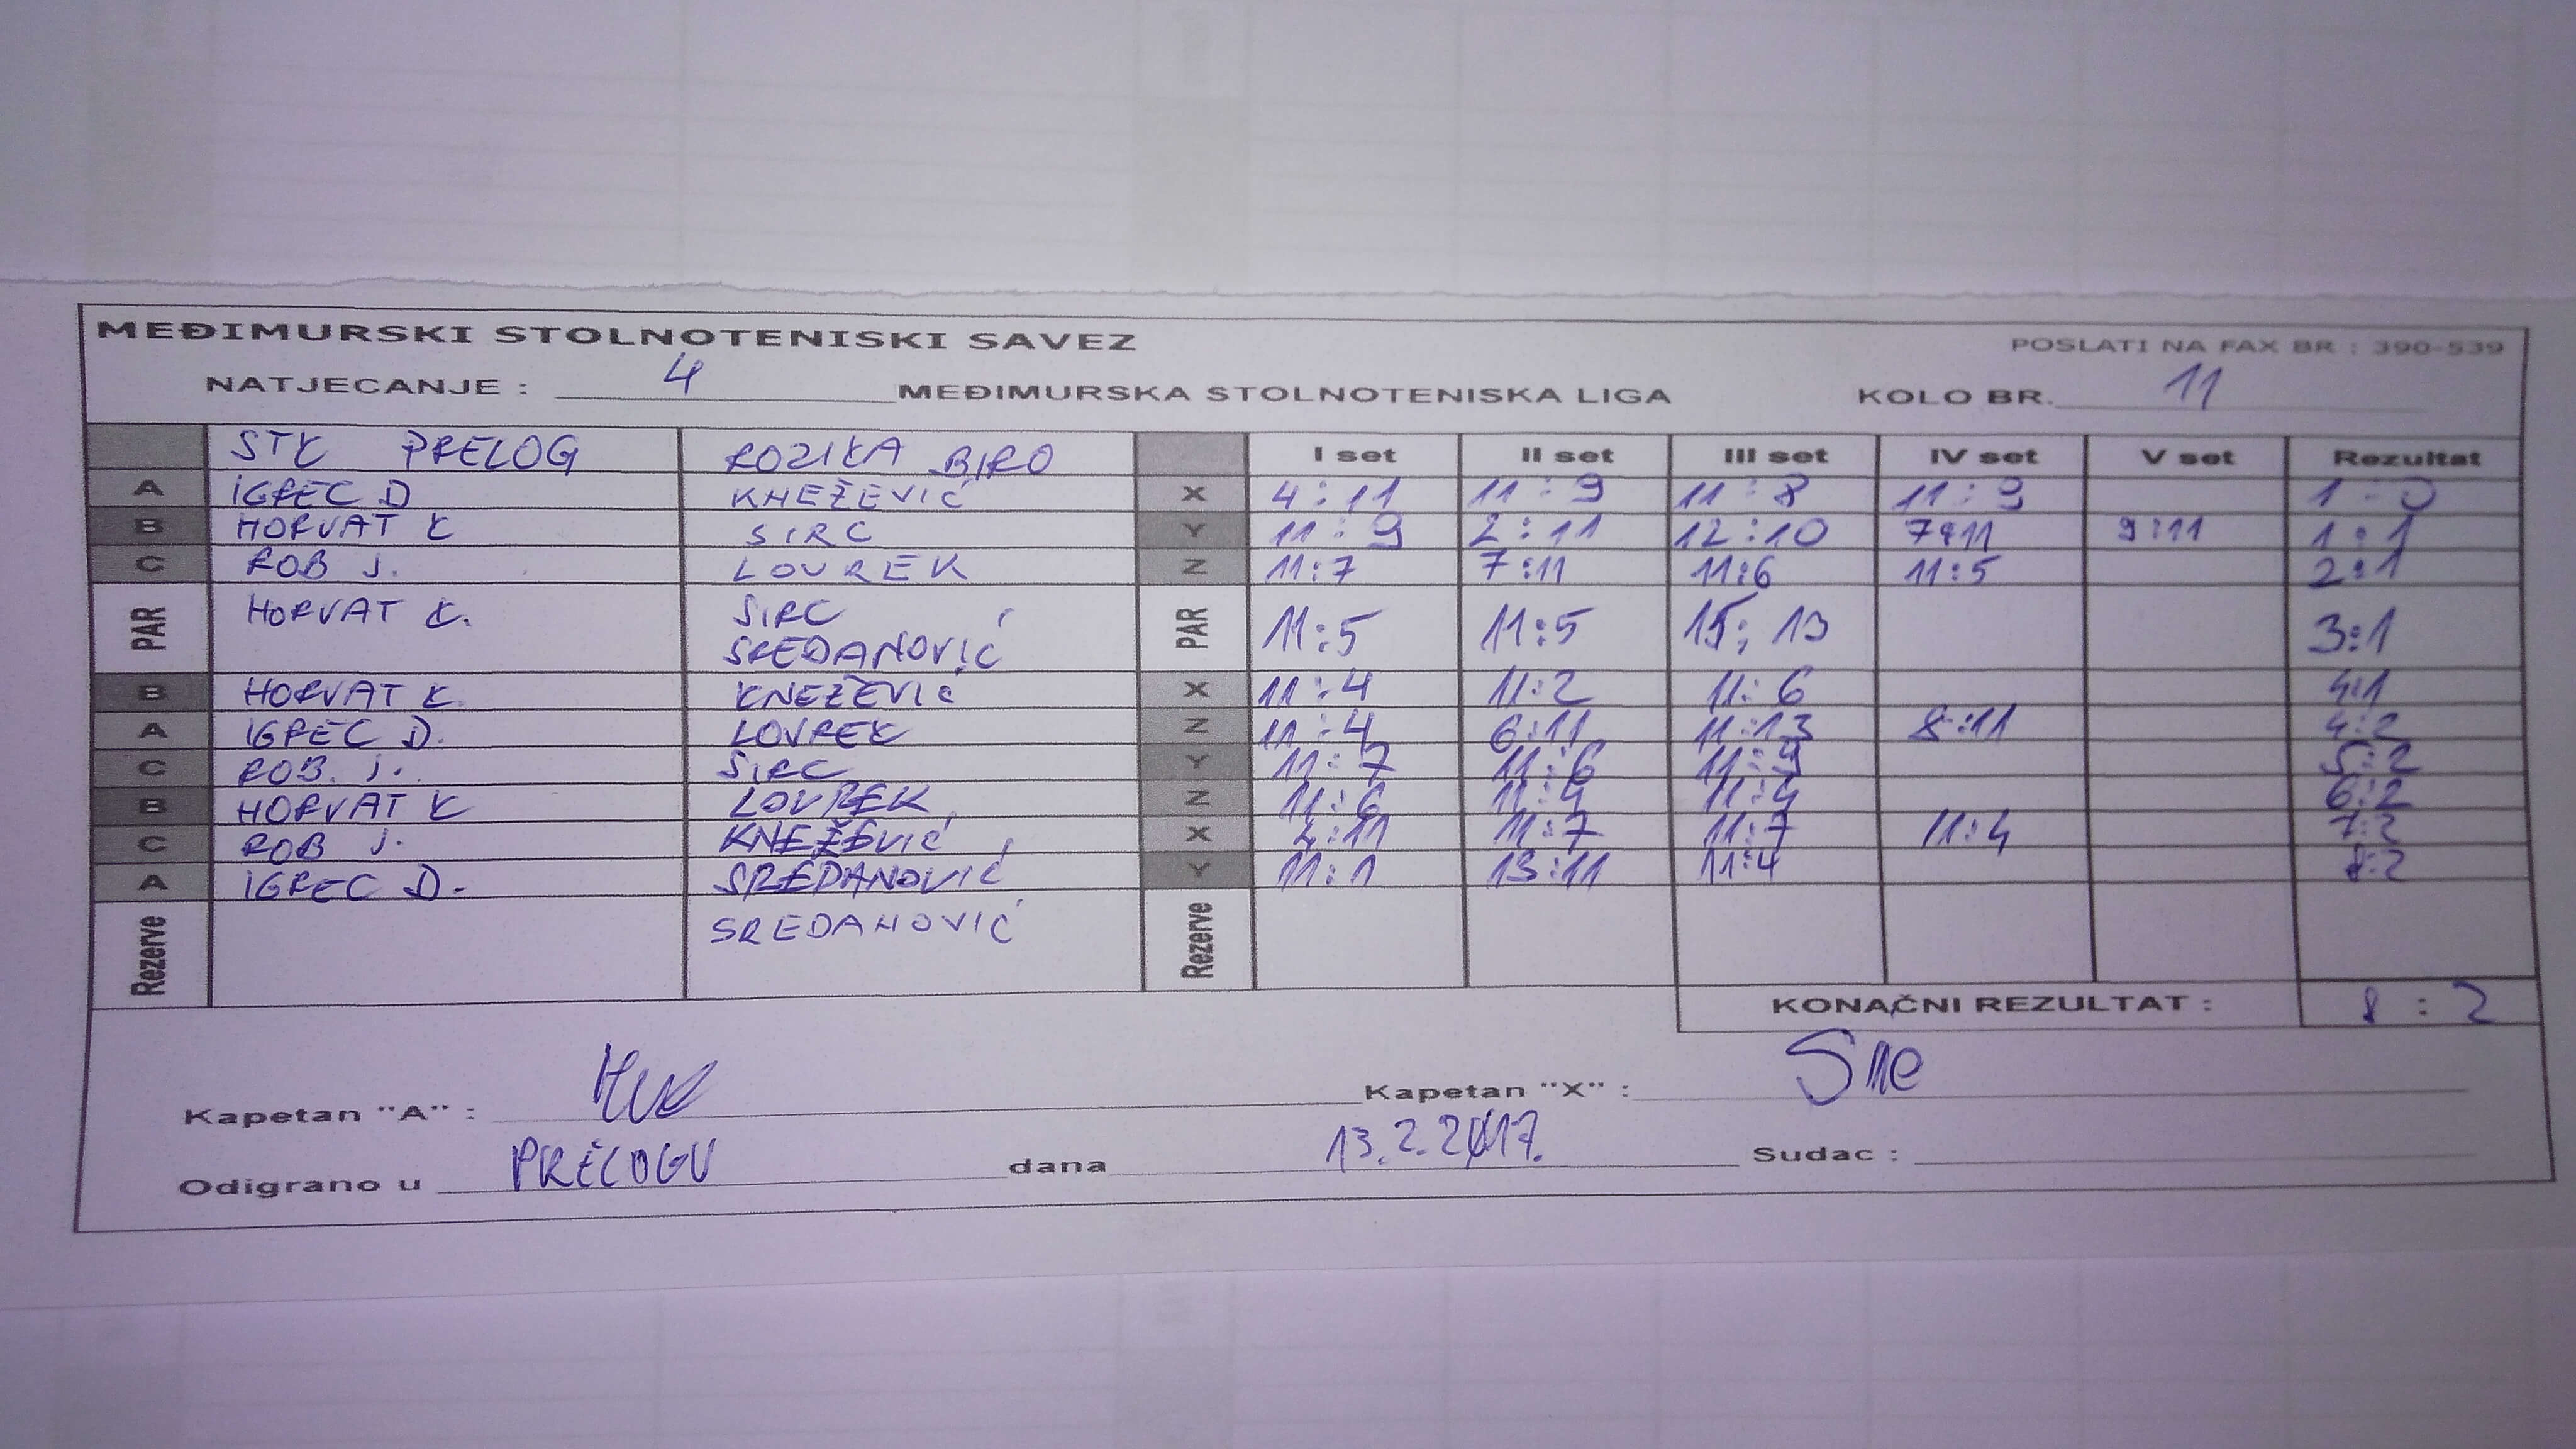 MEĐIMURSKI STOLNOTENISKI SAVEZ POSLATI NA FAX BR : 390-539
NATJECANJE : 4 MEĐIMURSKA STOLNOTENISKA LIGA KOLO BR. 11
STK PRELOG ROZIKA BIRO I set II set III set IV set V set Rezultat
A IGREC D KNEŽEVIĆ X 4:11 11:9 11:8 11:9 1:0
B HORVAT K SIRC Y 11:9 2:11 12:10 7:11 9:11 1:1
C ROB J. LOVREK Z 11:7 7:11 11:6 11:5 2:1
PAR HORVAT K. SIRC PAR 11:5 11:5 15:13 3:1
SREDANOVIĆ
B HORVAT K. KNEŽEVIĆ X 11:4 11:2 11:6 4:1
A IGREC D. LOVREK Z 11:4 6:11 11:13 8:11 4:2
C ROB. J. SIRC Y 11:7 11:6 11:9 5:2
B HORVAT K LOVREK Z 11:6 11:4 11:4 6:2
C ROB J. KNEŽEVIĆ X 4:11 11:7 11:7 11:4 7:2
A IGREC D. SREDANOVIĆ Y 11:1 13:11 11:4 8:2
Rezerve SREDANOVIĆ Rezerve
KONAČNI REZULTAT : 8 : 2
Kapetan "A" : Kapetan "X" :
Odigrano u PRELOGU dana 13.2.2017. Sudac :